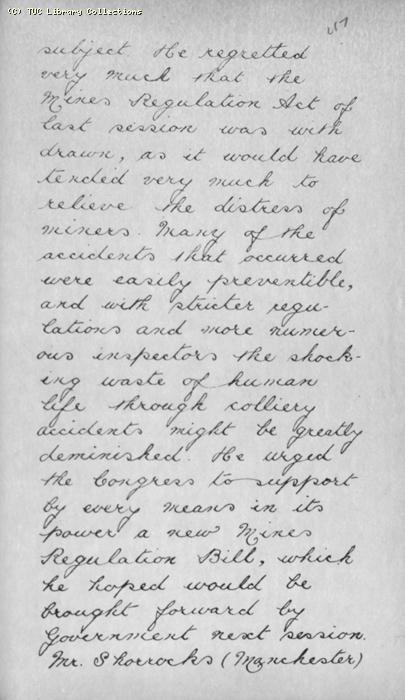 (C) TUC Library Collections
subject. He regretted
very much that the
Mines Regulation Act of
last session was with
drawn, as it would have
tended very much to
relieve the distress of
miners. Many of the
accidents that occurred
were easily preventible,
and with stricter regu-
lations and more numer-
ous inspectors the shock-
ing waste of human
life through colliery
accidents might be greatly
deminished. He urged
the Congress to support
by every means in its
power a new Mines
Regulation Bill, which
he hoped would be
brought forward by
Government next session.
Mr. Shorrocks (Manchester)